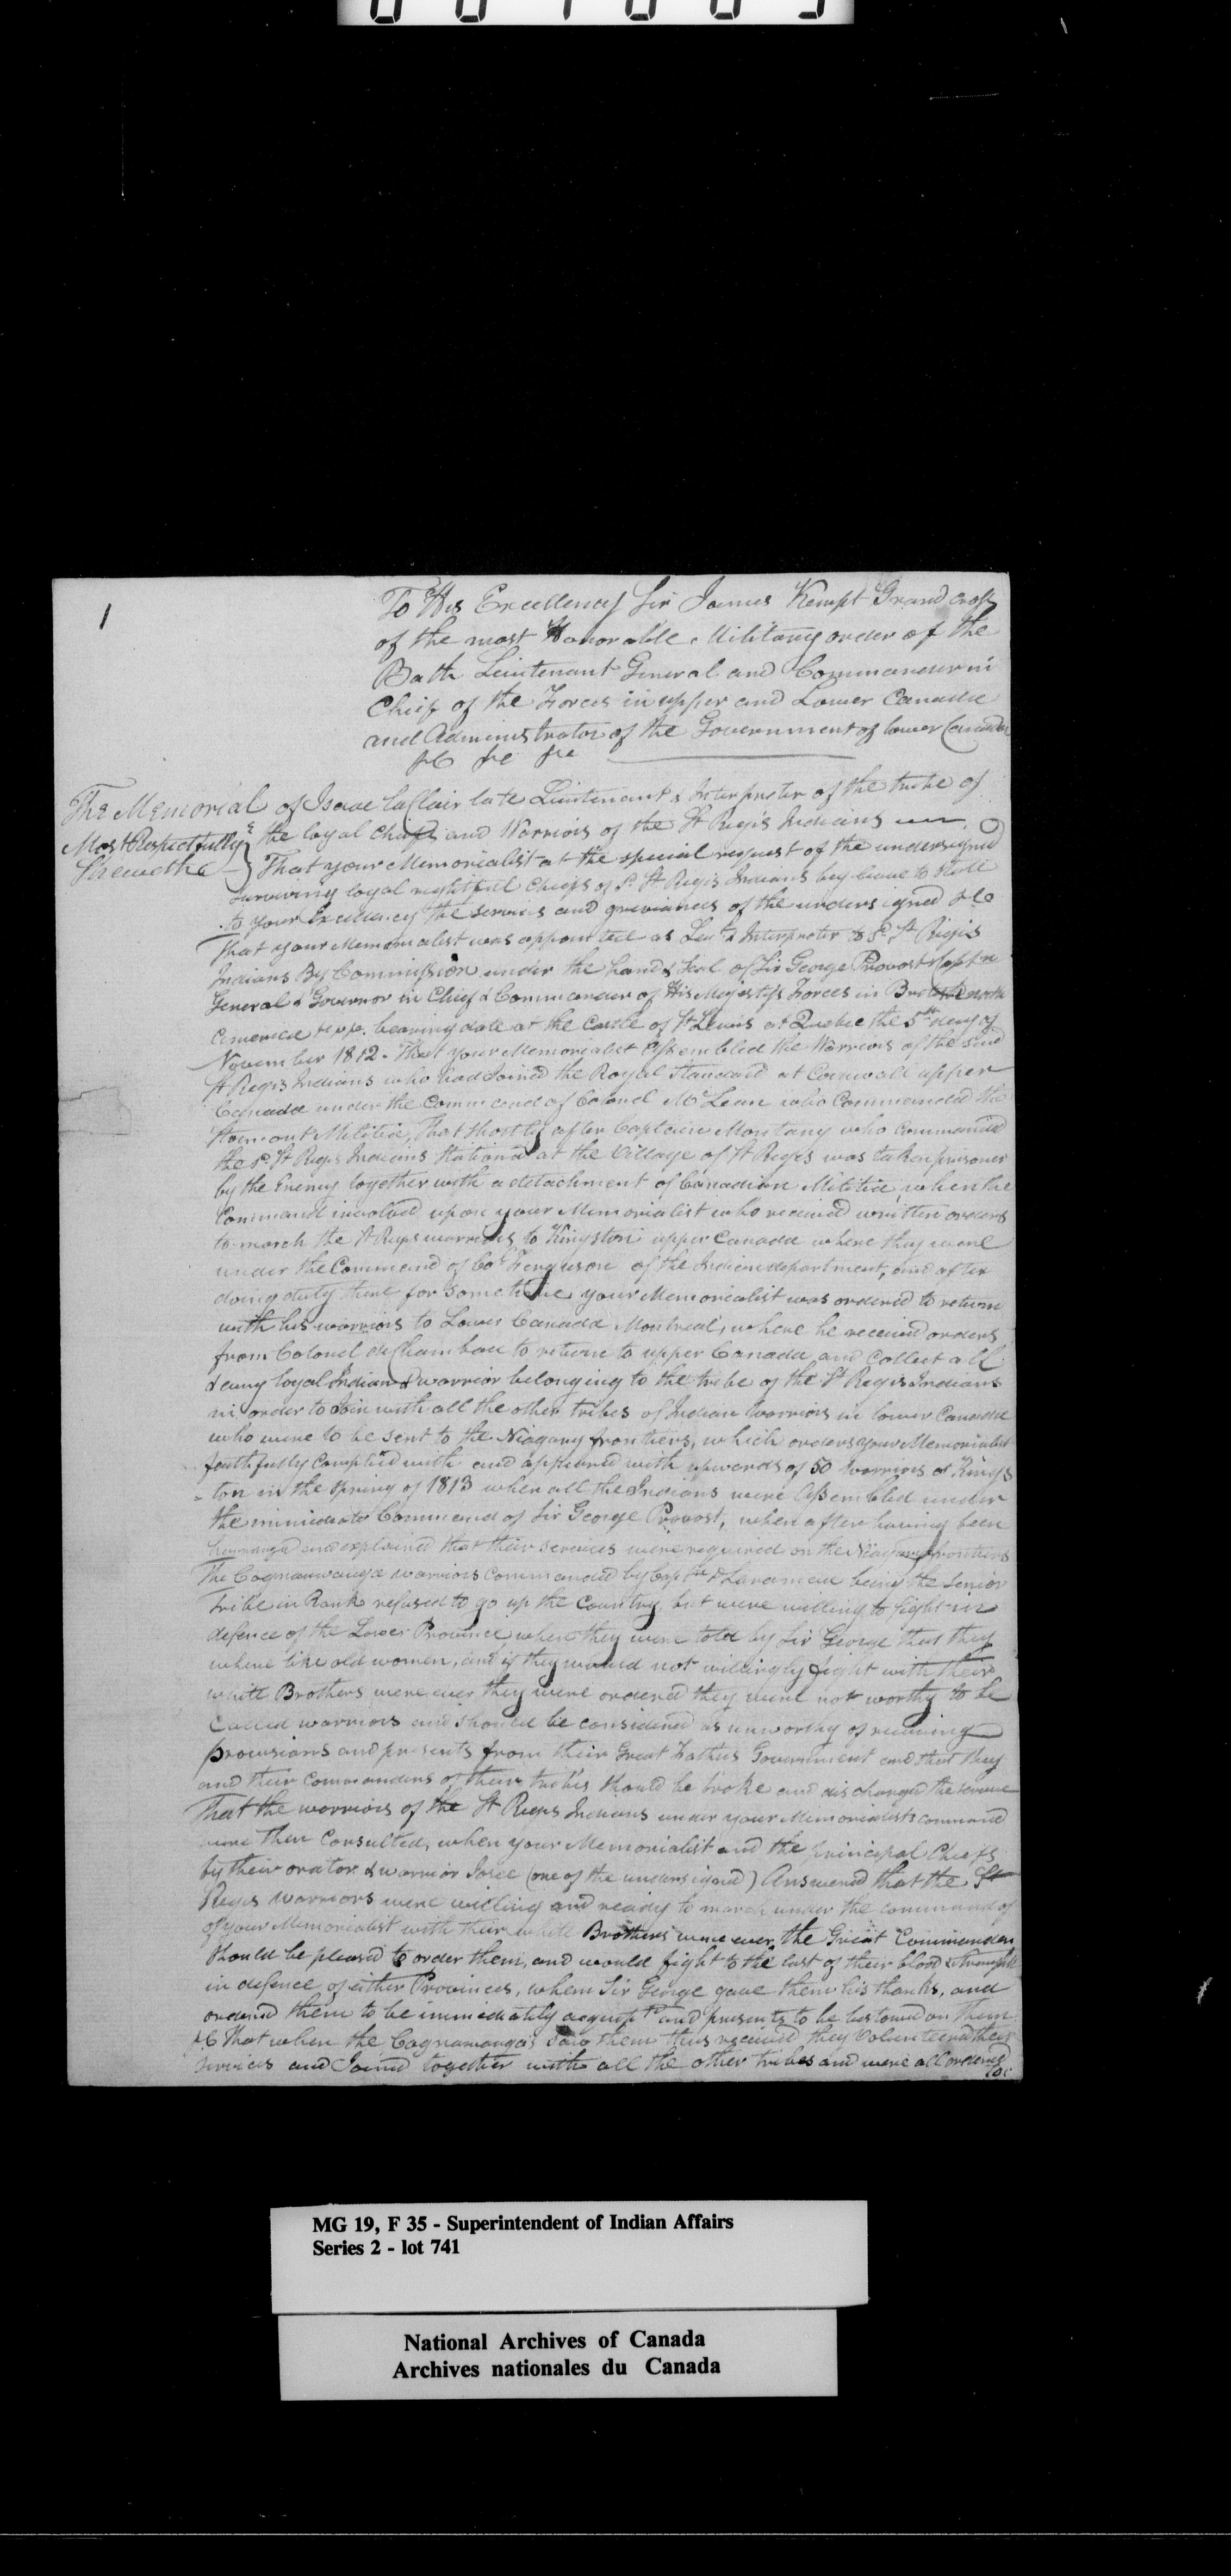 1
To His Excellency Sir James Kempt Grand Cross
of the most Honorable Military order of the
Bath Lieutenant General and Commander in
Chief of the Forces in upper and Lower Canada
and Administrator of the Government of lower Canada
&c &c &c
The Memorial of Isaac LaClair late Lieutenant & Interpreter of the tribe of
the loyal chiefs and Warriors of the St Regis Indians
Most Respectfully
Sheweth
That your Memorialist at the special request of the undersigned
surviving loyal rightful chiefs of Sd St Regis Indians beg leave to state
to your Excellency the services and grievances of the undersigned &c
That your Memorialist was appointed as Leut & Interpreter to Sd St Regis
Indians By Commission under the hand & Seal of Sir George Provost Captn
General & Governor in Chief & Commander of His Majestys Forces in north
America bearing date at the Castle of St Lewis at Quebec the 5th day of
November 1812 - That your Memorialist Assembled the Warriors of the said
St Regis Indians who had Joined the Royal Standard at Cornwall upper
Canada under the Command of Colonel McLean who Commanded the
Stormont Militia, That shortly after Captain Montany who commanded
the Sd St Regis Indians Stationd at the Village of St Regis was taken prisoner
by the Enemy together with a detachment of Canadian Militia, when the
Command involved upon your Memorialist who received written orders
to march the St Regis warriors to Kingston upper Canada where they were
under the Command of Col Ferguson of the Indian department, and after
doing duty there for some time your Memorialist was ordered to return
with his warriors to Lower Canada Montreal, where he received orders
from Colonel deChambau to return to upper Canada and Collect all
& every loyal Indian & warrior belonging to the tribe of the St Regis Indians
in order to Join with all the other tribes of Indian Warriors in lower Canada
who were to be sent to the Niagary frontiers, which orders your Memorialist
faithfully Complied with and appeared with upwards of 50 Warriors at Kings
ton in the Spring of 1813 when all the Indians were Assembled under
the immediate Command of Sir George Provost, when after having been
harrangued and explained that their services were required on the Niagara frontiers
The Cognauwauga warriors Commanded by Captn being the Senior
Tribe in Rank refused to go up the Country, but were willing to fight in
defence of the Lower Province, when they were told by Sir George that they
where like old women, and if they would not willingly fight with their
white Brothers were ever they were ordered they were not worthy to be
Called warriors and should be considered as unworthy of receiving
provisions and presents from their Great Fathers Government and that they
and their Commanders of their tribes should be broke and discharged the service
That the warriors of the St Regis Indians under your Memorialists command
were then Consulted, when your Memorialist and the principal Chiefs
by their orator & warrior (one of the undersigned) Answered that the St
Regis Warriors were willing and ready to march under the command of
of your Memorialist with their white Brothers were ever the Great Commander
should be pleased to order them, and would fight to the last of their blood & strength
in defence of either Provinces, when Sir George gave them his thanks, and
ordered them to be immediately and presents to be bestowed on them
&c That when the Cognawaugas saw them thus received they Volenteered their
services and Joined together with all the other tribes and were all ordered
to
MG 19, F 35 - Superintendent of Indian Affairs
Series 2 - lot 741
National Archives of Canada
Archives nationales du Canada